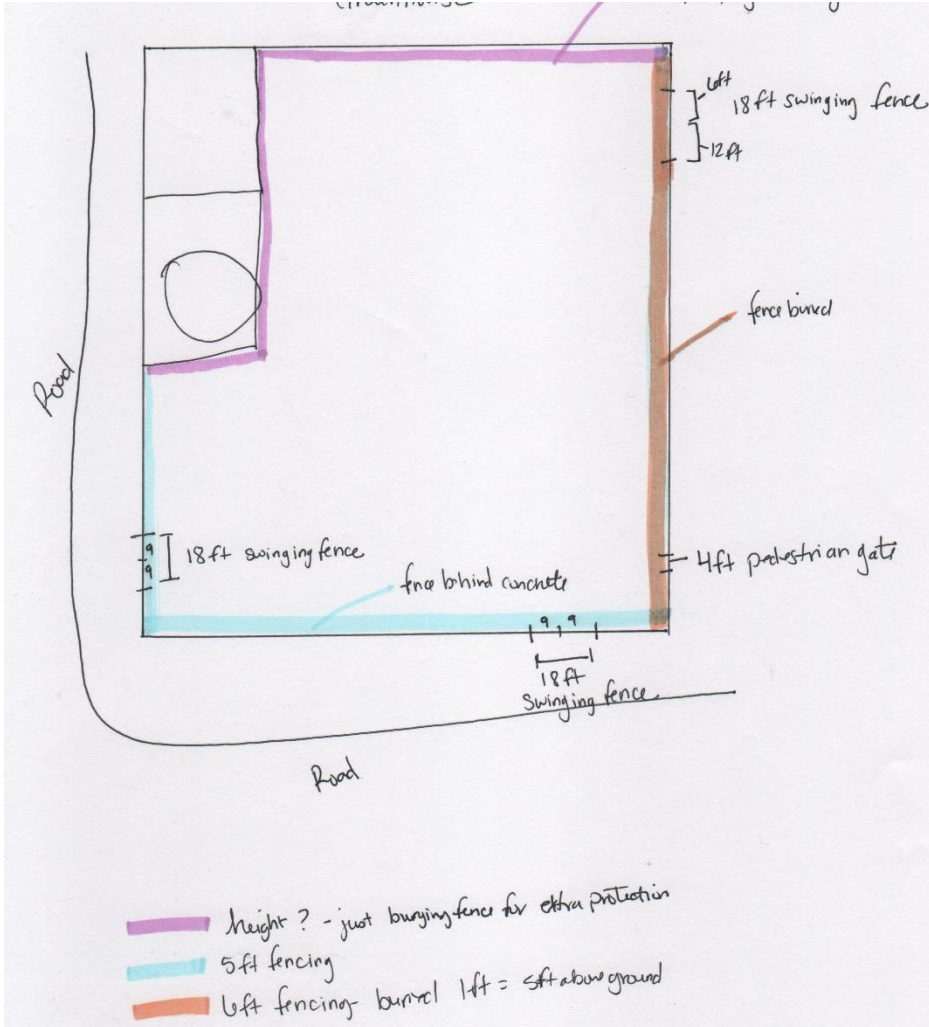 6ft
18ft swinging fence
12ft
fence buried
Road
4ft pedestrian gate
9
9
18ft swinging fence
fence behind concrete
9, 9
18ft
Swinging fence
Road
height? - just burying fence for extra protection
5ft fencing
6ft fencing - buried 1ft = 5ft above ground